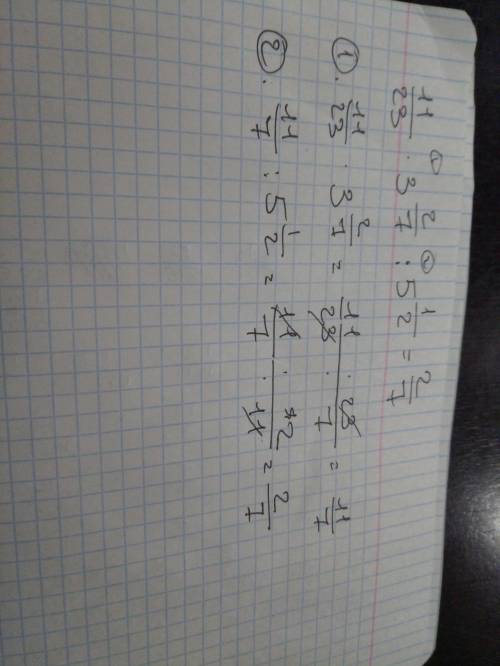 11/23 · 3 2/7 : 5 1/2 = 2/7
① ②
①. 11/23 · 3 2/7 = 11/23 · 23/7 = 11/7
②. 11/7 : 5 1/2 = 11/7 · 2/11 = 2/7